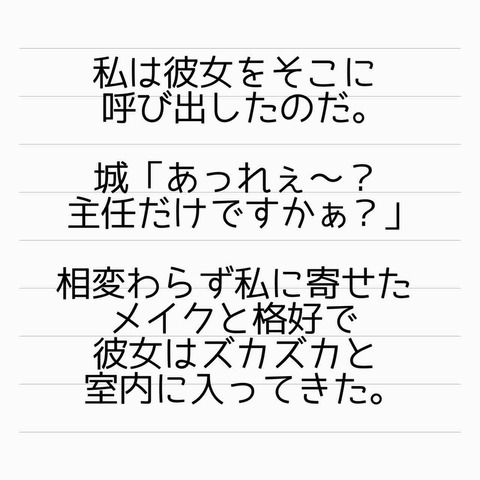 私は彼女をそこに
呼び出したのだ。
城「あっれぇ〜？
主任だけですかぁ？」
相変わらず私に寄せた
メイクと格好で
彼女はズカズカと
室内に入ってきた。